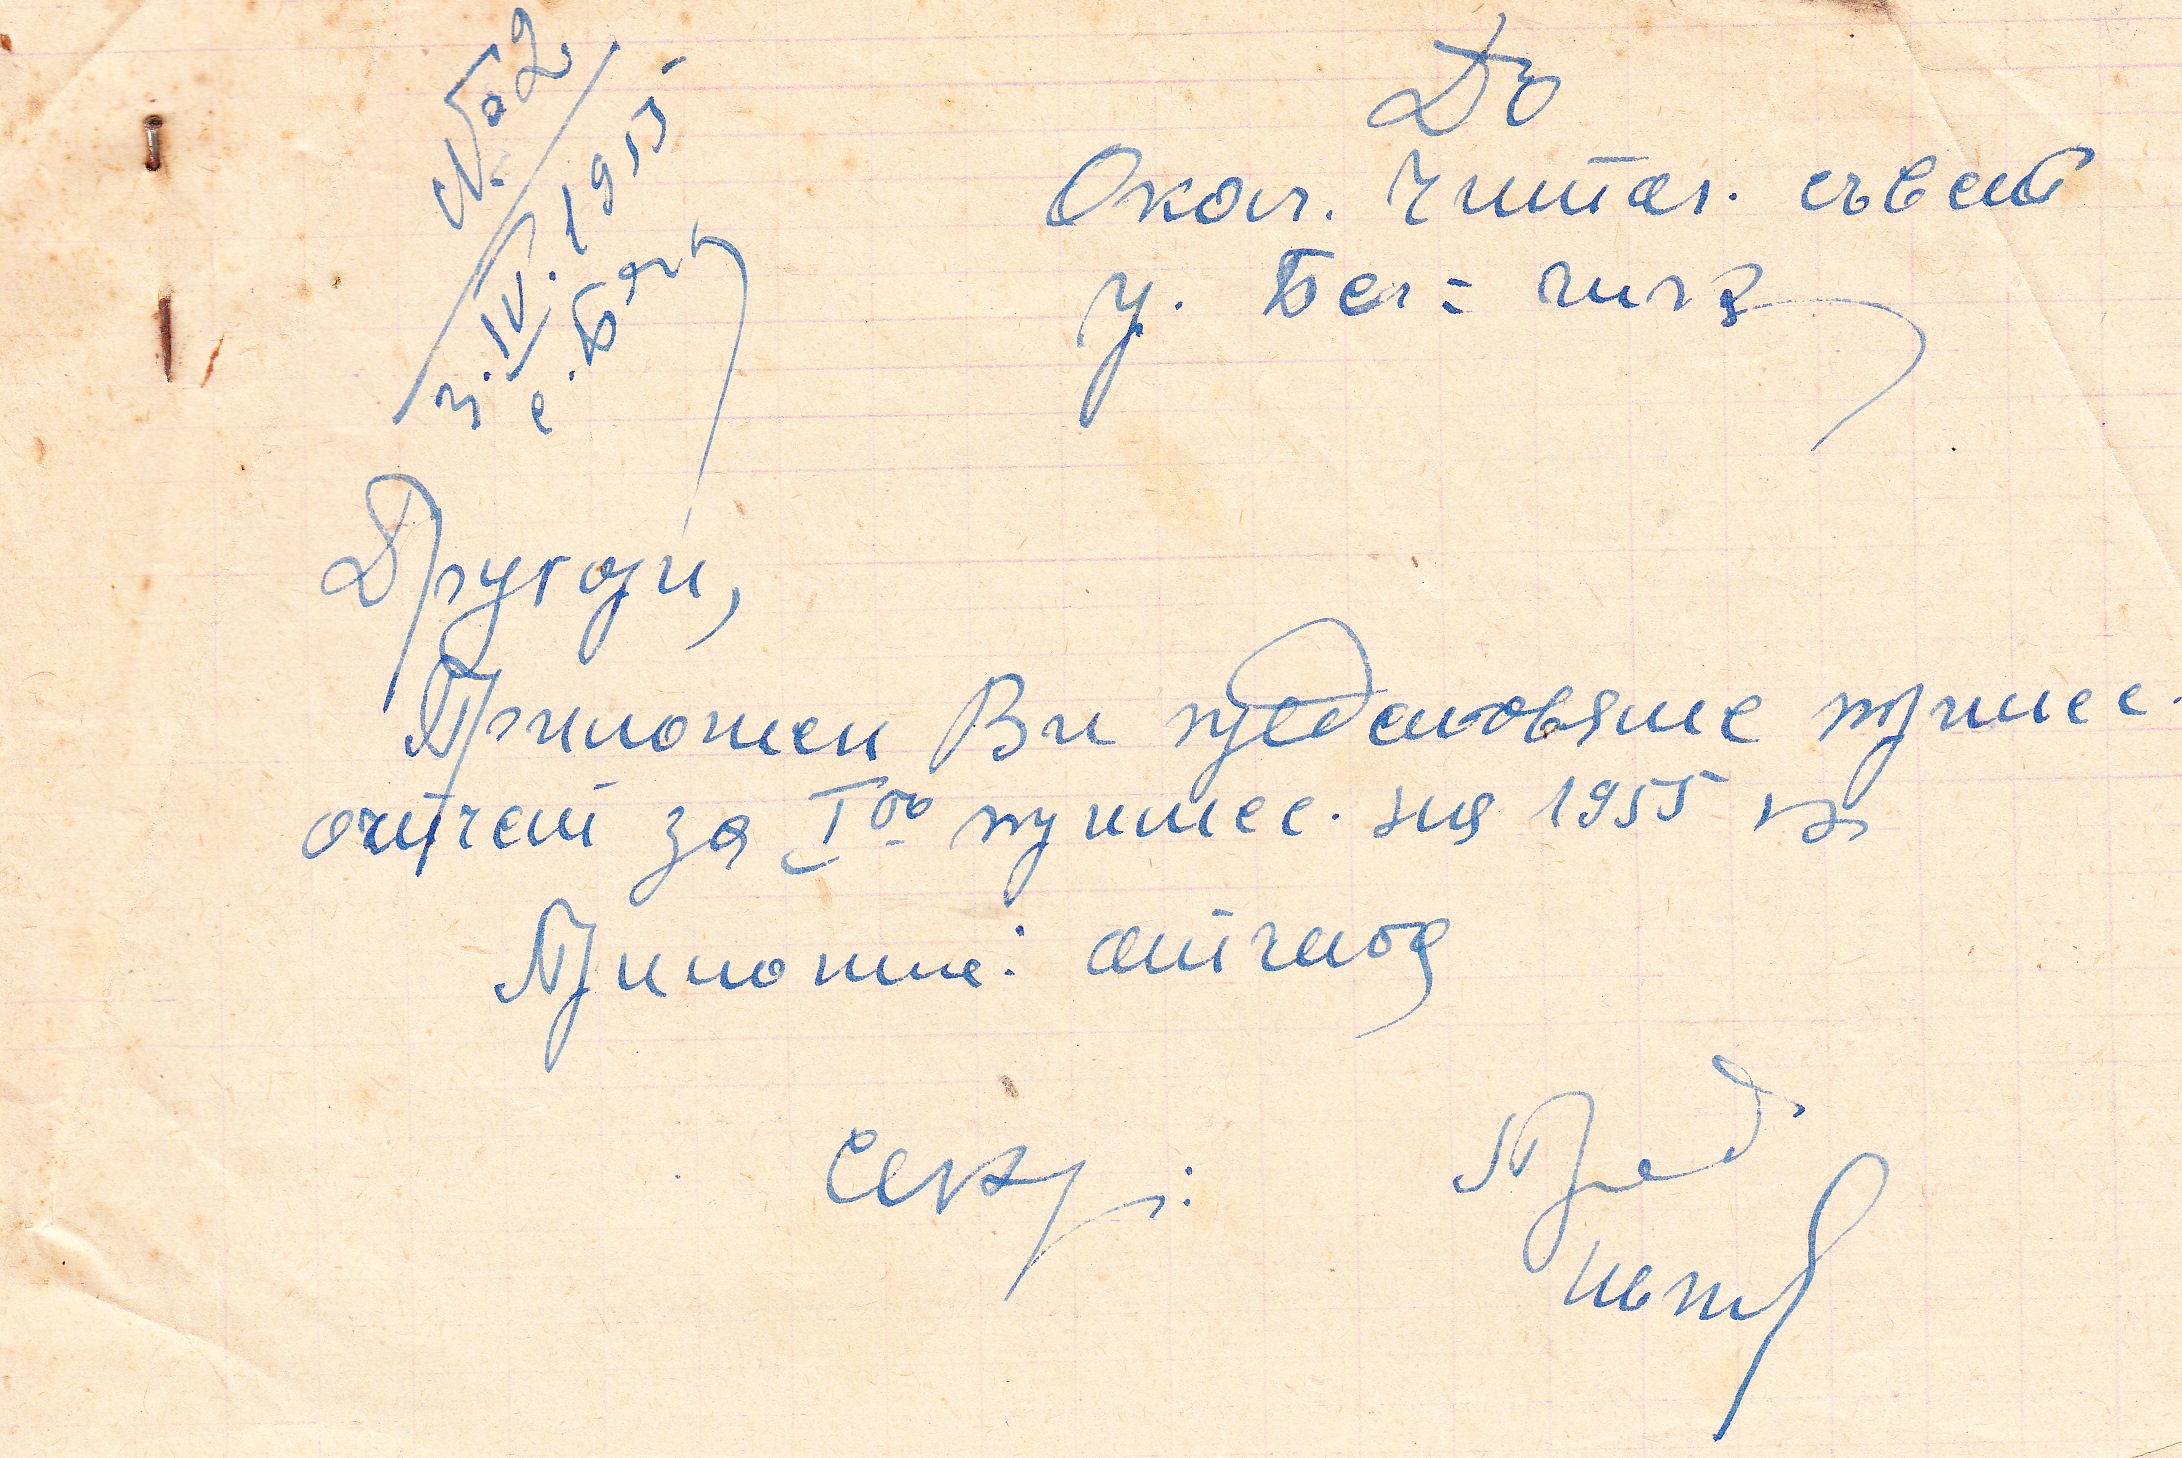 № 2
IV. 1955
До
Окол. Читал. съвет
гр. Бел=
Другари,
Приложен Ви представяме тримес.
отчет за Iво тримес. на 1955 г.
Приложние: отчета
Секр.: Пред.